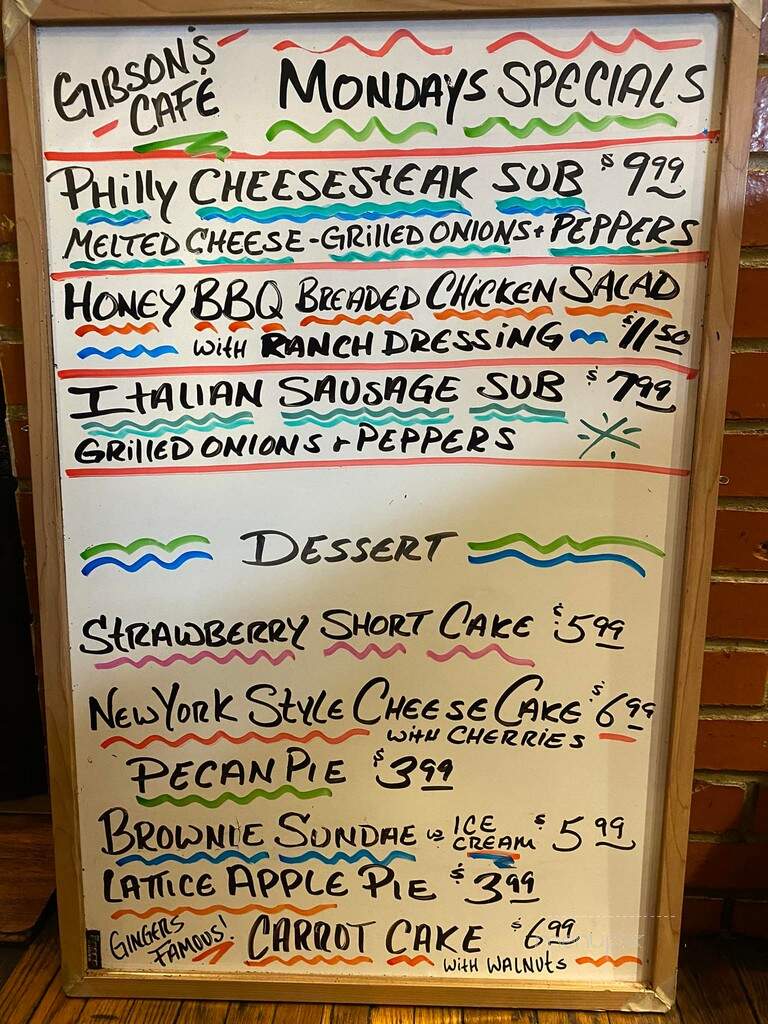 GIBSON'S
CAFE
MONDAYS SPECIALS
PHILLY CHEESESTEAK SUB $9.99
MELTED CHEESE - GRILLED ONIONS + PEPPERS
HONEY BBQ BREADED CHICKEN SALAD
WITH RANCH DRESSING ~ $11.50
ITALIAN SAUSAGE SUB $7.99
GRILLED ONIONS + PEPPERS
DESSERT
STRAWBERRY SHORT CAKE $5.99
NEW YORK STYLE CHEESE CAKE $6.99
WITH CHERRIES
PECAN PIE $3.99
BROWNIE SUNDAE W ICE CREAM $5.99
LATTICE APPLE PIE $3.99
GINGERS FAMOUS! CARROT CAKE $6.99
WITH WALNUTS